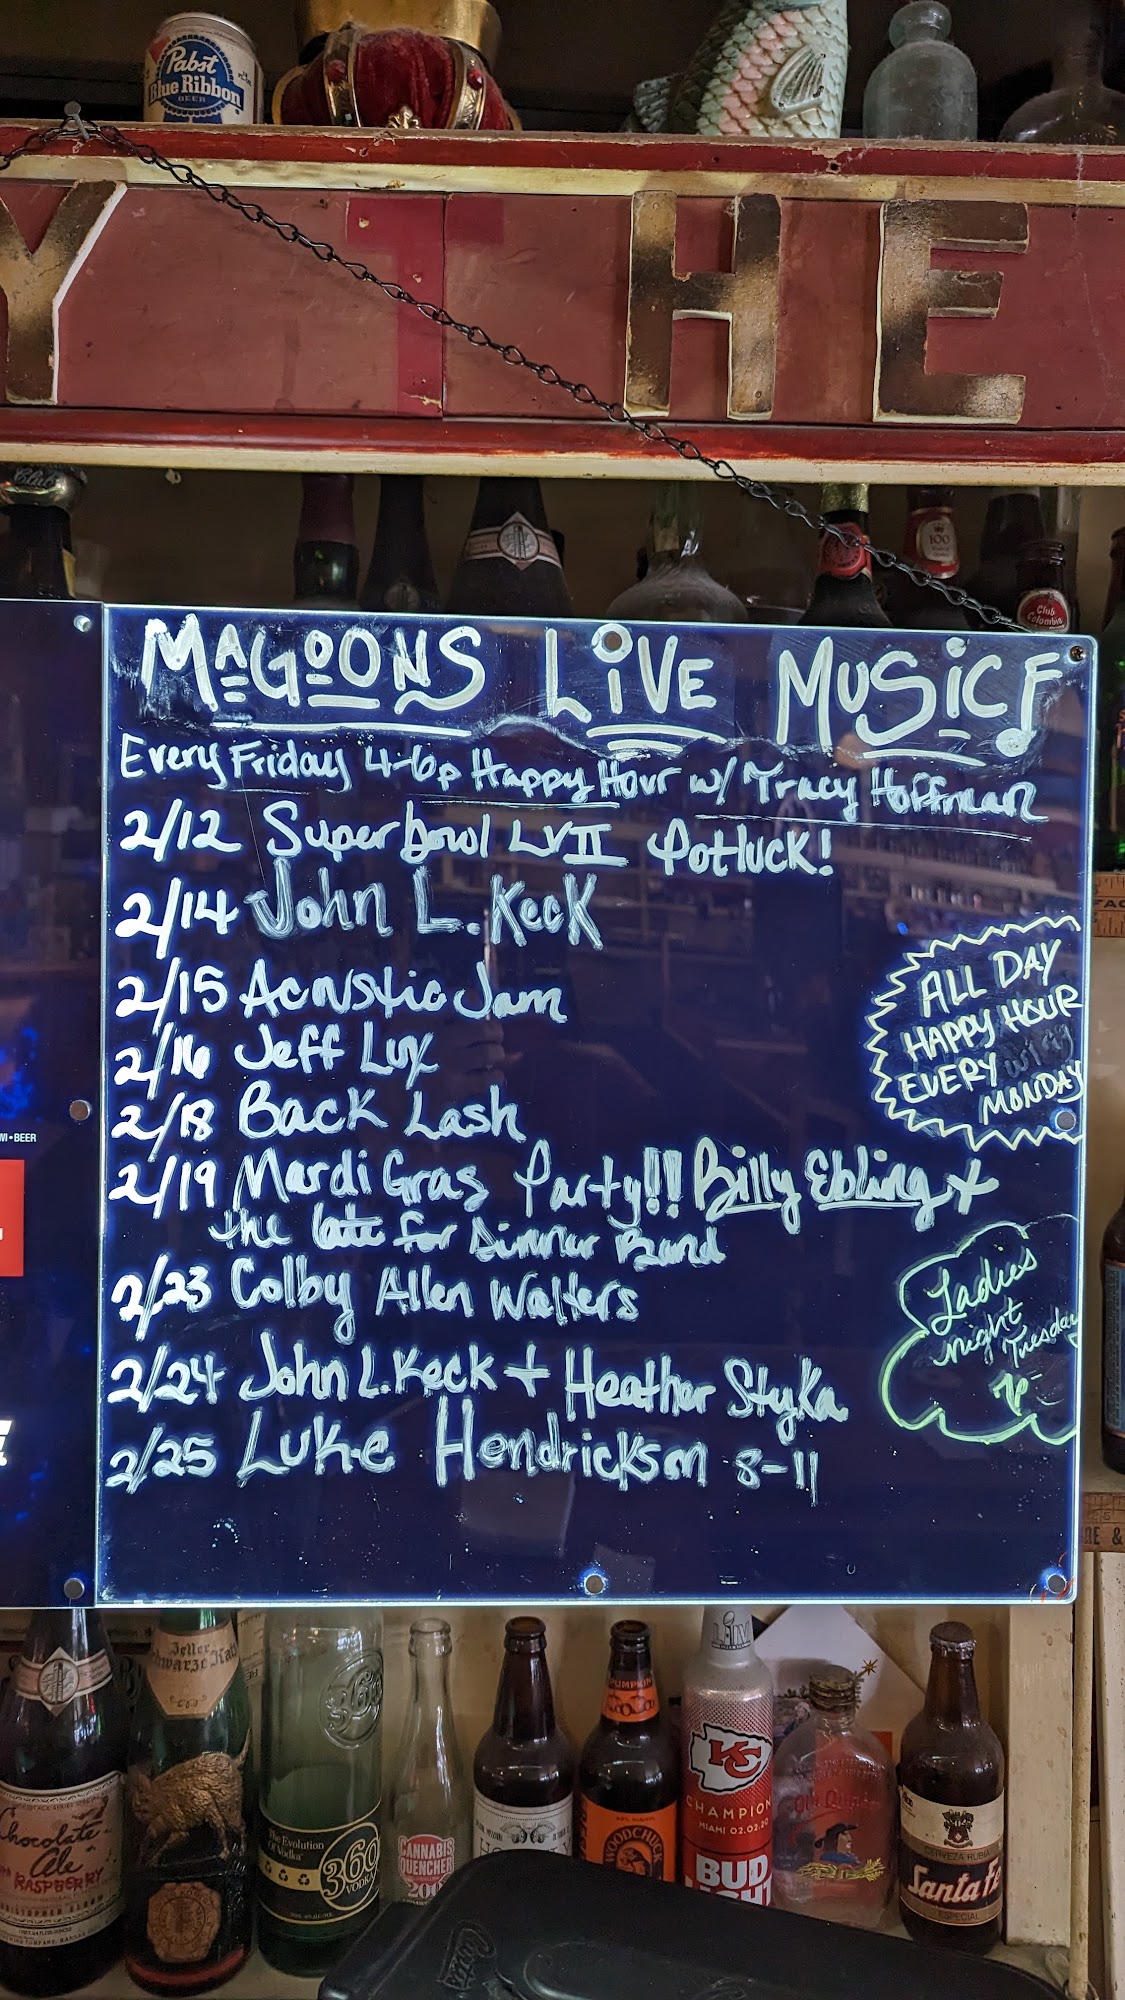 Pabst
Blue Ribbon
BEER
Y THE
Club
100
Club
Colombia
MAGOONS LiVE MUSiC
Every Friday 4-6p Happy Hour w/ Tracy Hoffman
2/12 Superbowl LVII Potluck!
2/14 John L. Keck
2/15 Acoustic Jam
2/16 Jeff Lux
2/18 Back Lash
2/19 Mardi Gras Party!! Billy Ebling +
the late for Dinner Band
2/23 Colby Allen Walters
2/24 John L. Keck + Heather Styka
2/25 Luke Hendrickson 8-11
ALL DAY
HAPPY HOUR
EVERY
MONDAY
Ladies
night
Tuesday
BEER
Zeller
Schwarze Katz
Chocolate
Ale
RASPBERRY
The Evolution
Of Vodka
360
VODKA
CANNABIS
QUENCHER
200
PUMPKIN
WOODCHUCK
LIV
KC
CHAMPION
MIAMI 02.02.20
BUD
LIGHT
CERVEZA RUBIA
Santa Fe
ESPECIAL